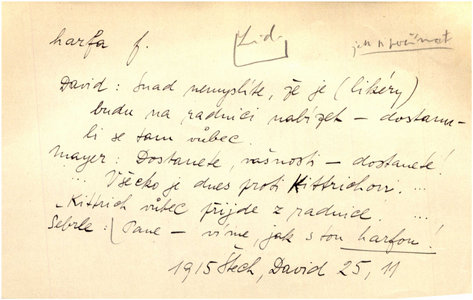 harfa f. [Lid.
David: Snad nemyslíte, že je (likéry)
budu na radnici nabízet – dostane-
li se tam vůbec.
Mayer: Dostanete, vašnosti – dostanete!
... Všecko je dnes proti Kittrichovi. ...
Kittrich vůbec přijde z radnice. ...
Šebrle: Pane – víme, jak s tou harfou!
1915 Štech, David 25, 11